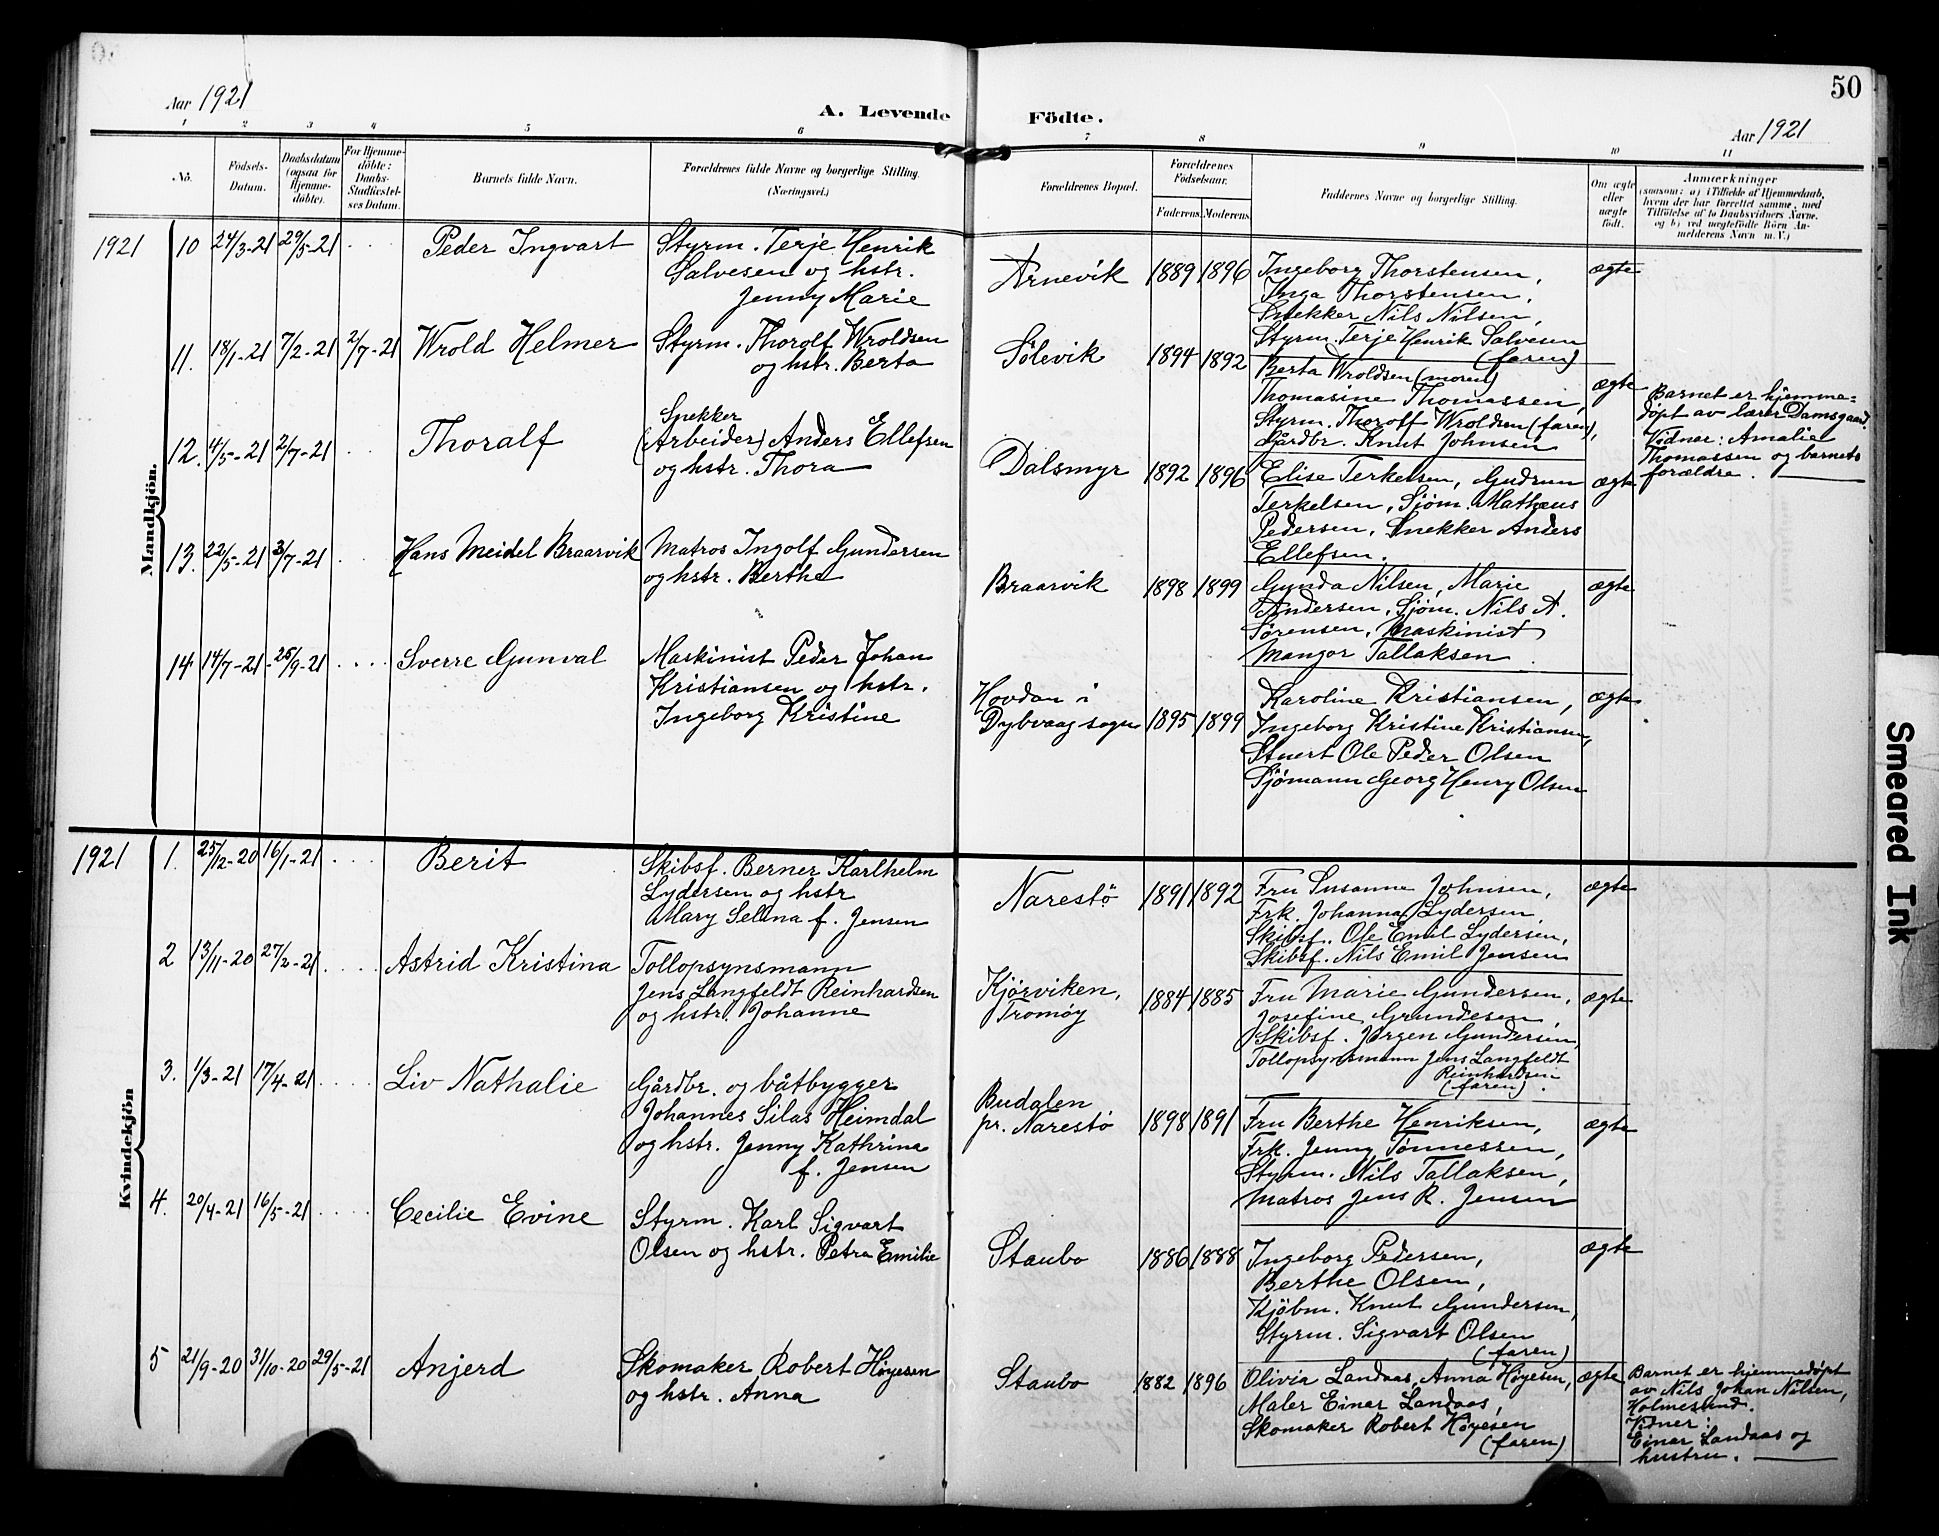 50
Aar 1921
A. Levende
Födte.
Aar 1921
1 2 3 4 5 6 7 8 9 10 11
No.
Födsels-
Datum.
Daabsdatum
(ogsaa for
Hjemme-
döbte).
For Hjemme-
döbte:
Daabs-
Stadfæstel-
ses Datum.
Barnets fulde Navn.
Forældrenes fulde Navne og borgerlige Stilling.
(Næringsvei.)
Forældrenes Bopæl.
Forældrenes
Födselsaar.
Faderens. Moderens.
Faddernes Navne og borgerlige Stilling.
Om ægte
eller
uægte
födt.
Anmærkninger
(saasom: a) i Tilfælde af Hjemmedaab,
hvem der har forrettet samme, med
Tilföielse af to Daabsvidners Navne.
og b) ved uægtefödte Börn An-
melderens Navn m. V.)
Mandkjön.
1921 10 24/3-21 29/5-21 .... Peder Ingvart
Styrm. Terje Henrik
Salvesen og hstr.
Jenny Marie
Arnevik 1889 1896
Ingeborg Thorstensen,
Inga Thorstensen,
Snekker Nils Nilsen,
Styrm. Terje Henrik Salvesen
(faren)
ægte
11. 18/1-21 7/2-21 2/7-21 Wrold Helmer
Styrm. Thorolf Wroldsen
og hstr. Berta
Sølevik 1894 1892
Berta Wroldsen (moren)
Thomasine Thomassen,
Styrm. Thorolf Wroldsen (faren),
Gårdbr. Knut Johnsen
ægte
Barnet er hjemme-
døpt av lærer Damsgaard.
Vidner: Amalie
Thomassen og barnets
forældre.
12. 4/5-21 2/7-21 .. Thoralf
Snekker
(Arbeider) Anders Ellefsen
og hstr. Thora
Dalsmyr 1892 1896
Elise Terkelsen, Gudrun
Terkelsen, Sjøm. Mathæus
Pedersen, Snekker Anders
Ellefsen.
ægte
13. 22/5-21 3/7-21 .... Hans Meidel Braarvik
Matros Ingolf Gundersen
og hstr. Berthe
Braarvik 1898 1899
Gunda Nilsen, Marie
Andersen, Sjøm. Nils A.
Sørensen, Maskinist
Mangor Tallaksen
ægte
14 14/7-21 25/9-21 .... Sverre Gunval
Maskinist Peder Johan
Kristiansen og hstr.
Ingeborg Kristine
Hovdan i
Dybvaag sogn 1895 1899
Karoline Kristiansen,
Ingeborg Kristine Kristiansen,
Stuert Ole Peder Olsen
Sjømann Georg Henry Olsen
ægte
Kvindekjön
1921 1. 25/12-20 16/1-21 .... Berit
Skibsf. Berner Karlhelm
Lydersen og hstr
Mary Selina f. Jensen
Narestö 1891 1892
Fru Susanne Johnsen,
Frk. Johanna Lydersen,
Skibsf. Ole Emil Lydersen,
Skibsf. Nils Emil Jensen
ægte
2 13/11-20 27/2-21 .... Astrid Kristina
Tollopsynsmann
Jens Langfeldt Reinhardsen
og hstr. Johanne
Kjørviken,
Tromøy 1884 1885
Fru Marie Gundersen,
Josefine Grundesen,
Skibsf. Jørgen Gundersen,
Tollopsynsmann Jens Langfeldt
Reinhardsen
(faren).
ægte
3. 1/3-21 17/4-21 .... Liv Nathalie
Gårdbr. og båtbygger
Johannes Silas Heimdal
og hstr. Jenny Kathrine
f. Jensen
Budalen
pr. Narestö 1898 1891
Fru Berthe Henriksen,
Frk. Jenny Tønnessen,
Styrm. Nils Tallaksen,
Matros Jens R. Jensen
ægte
4. 20/4-21 16/5-21 .... Cecilie Evine
Styrm. Karl Sigvart
Olsen og hstr. Petra Emilie
Staubo 1886 1888
Ingeborg Pedersen,
Berthe Olsen,
Kjøbm. Knut Gundersen,
Styrm. Sigvart Olsen
(faren)
ægte
5 21/9-20 31/10-20 29/5-21 Anjerd
Skomaker Robert Høyesen
og hstr. Anna
Staubo 1882 1896
Olivia Landaas, Anna Høyesen,
Maler Einer Landaas,
Skomaker Robert Høyesen
(faren)
ægte
Barnet er hjemmedøpt
av Nils Johan Nilsen,
Holmesund.
Vidner:
Einar Landaas og
hustru.
Smeared Ink